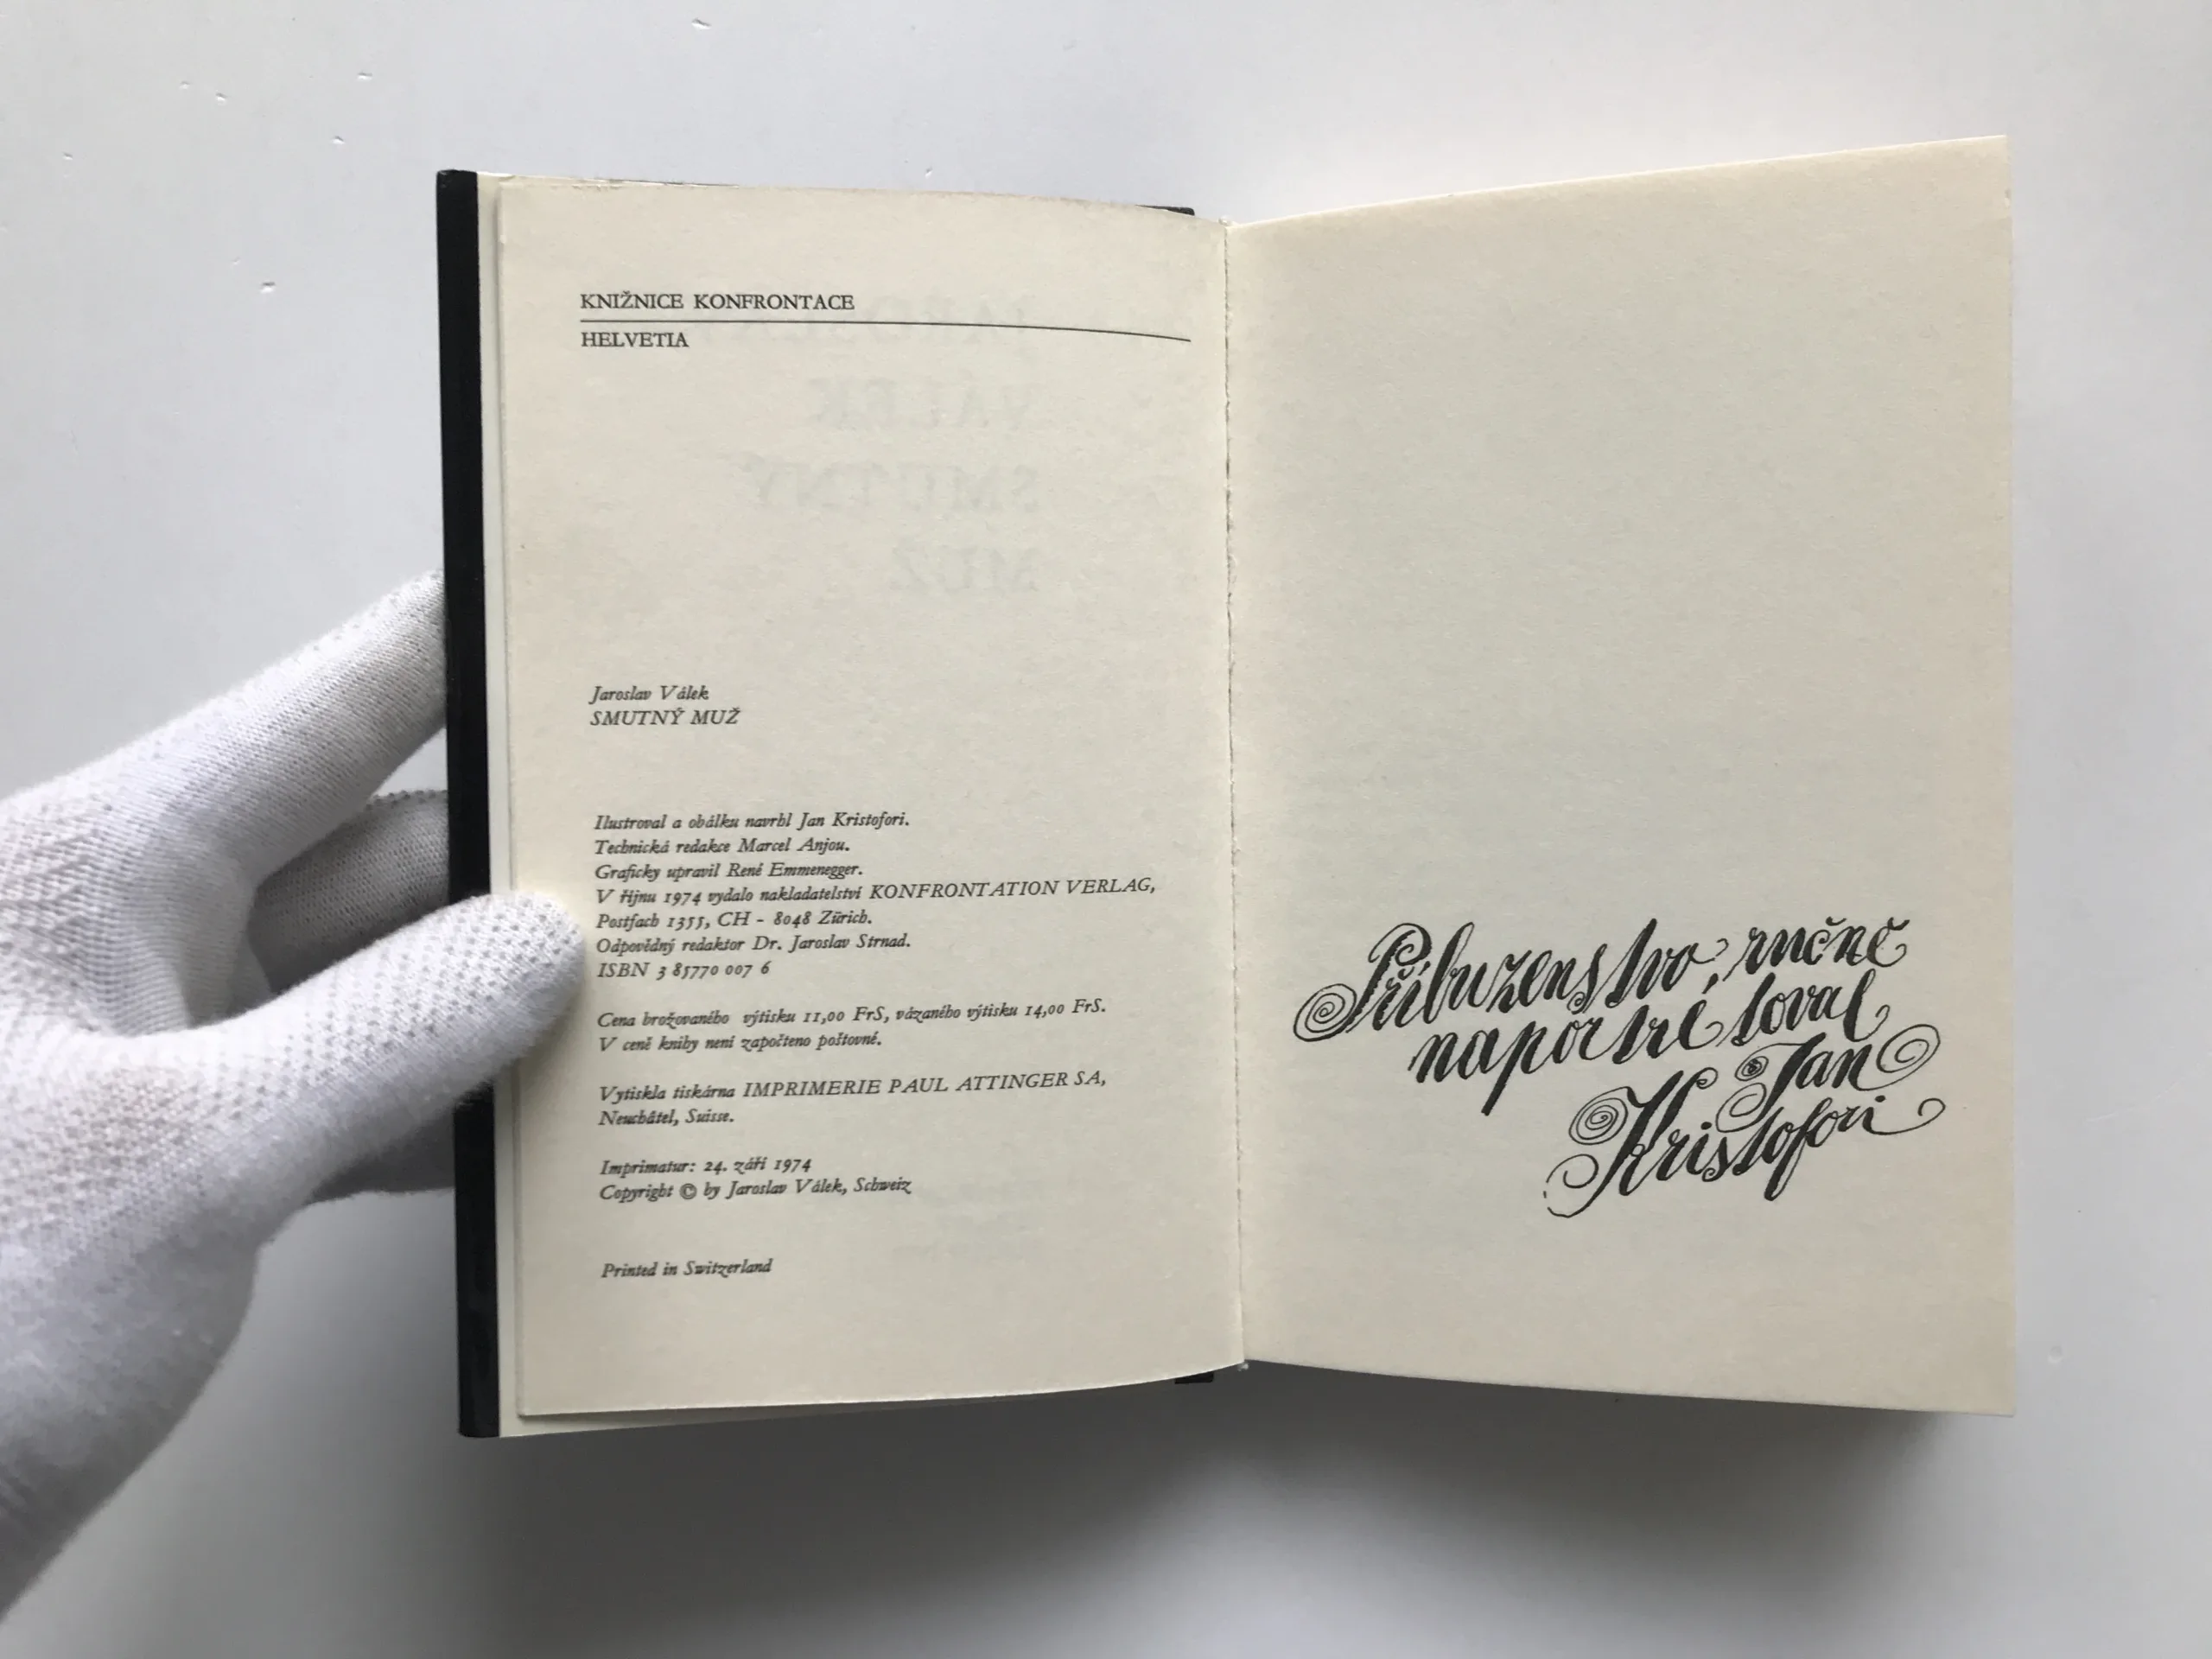 KNIŽNICE KONFRONTACE
HELVETIA
Jaroslav Válek
SMUTNÝ MUŽ
Ilustroval a obálku navrhl Jan Kristofori.
Technická redakce Marcel Anjou.
Graficky upravil René Emmenegger.
V říjnu 1974 vydalo nakladatelství KONFRONTATION VERLAG,
Postfach 1355, CH - 8048 Zürich.
Odpovědný redaktor Dr. Jaroslav Strnad.
ISBN 3 85770 007 6
Cena brožovaného výtisku 11,00 FrS, vázaného výtisku 14,00 FrS.
V ceně knihy není započteno poštovné.
Vytiskla tiskárna IMPRIMERIE PAUL ATTINGER SA,
Neuchâtel, Suisse.
Imprimatur: 24. září 1974
Copyright © by Jaroslav Válek, Schweiz
Printed in Switzerland
Příbuzenstvo ručně
naportrétoval
Jan
Kristofori